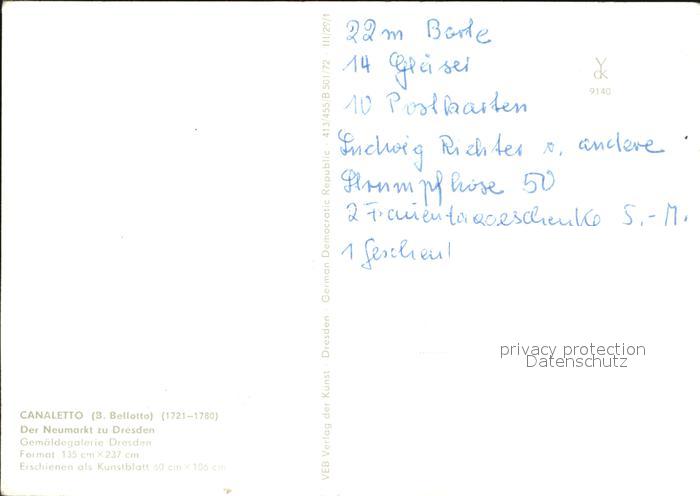 22m Borte
14 Gläser
10 Postkarten
Ludwig Richter o. andere
Strumpfhose 50
2 Frauentagsgeschenke 5.-M.
1 Geschenk
9140
privacy protection
Datenschutz
VEB Verlag der Kunst · Dresden · German Democratic Republic · 413/455/B 501/72 · III/29/1
CANALETTO (B. Bellotto) (1721–1780)
Der Neumarkt zu Dresden
Gemäldegalerie Dresden
Format 135 cm × 237 cm
Erschienen als Kunstblatt 60 cm × 106 cm